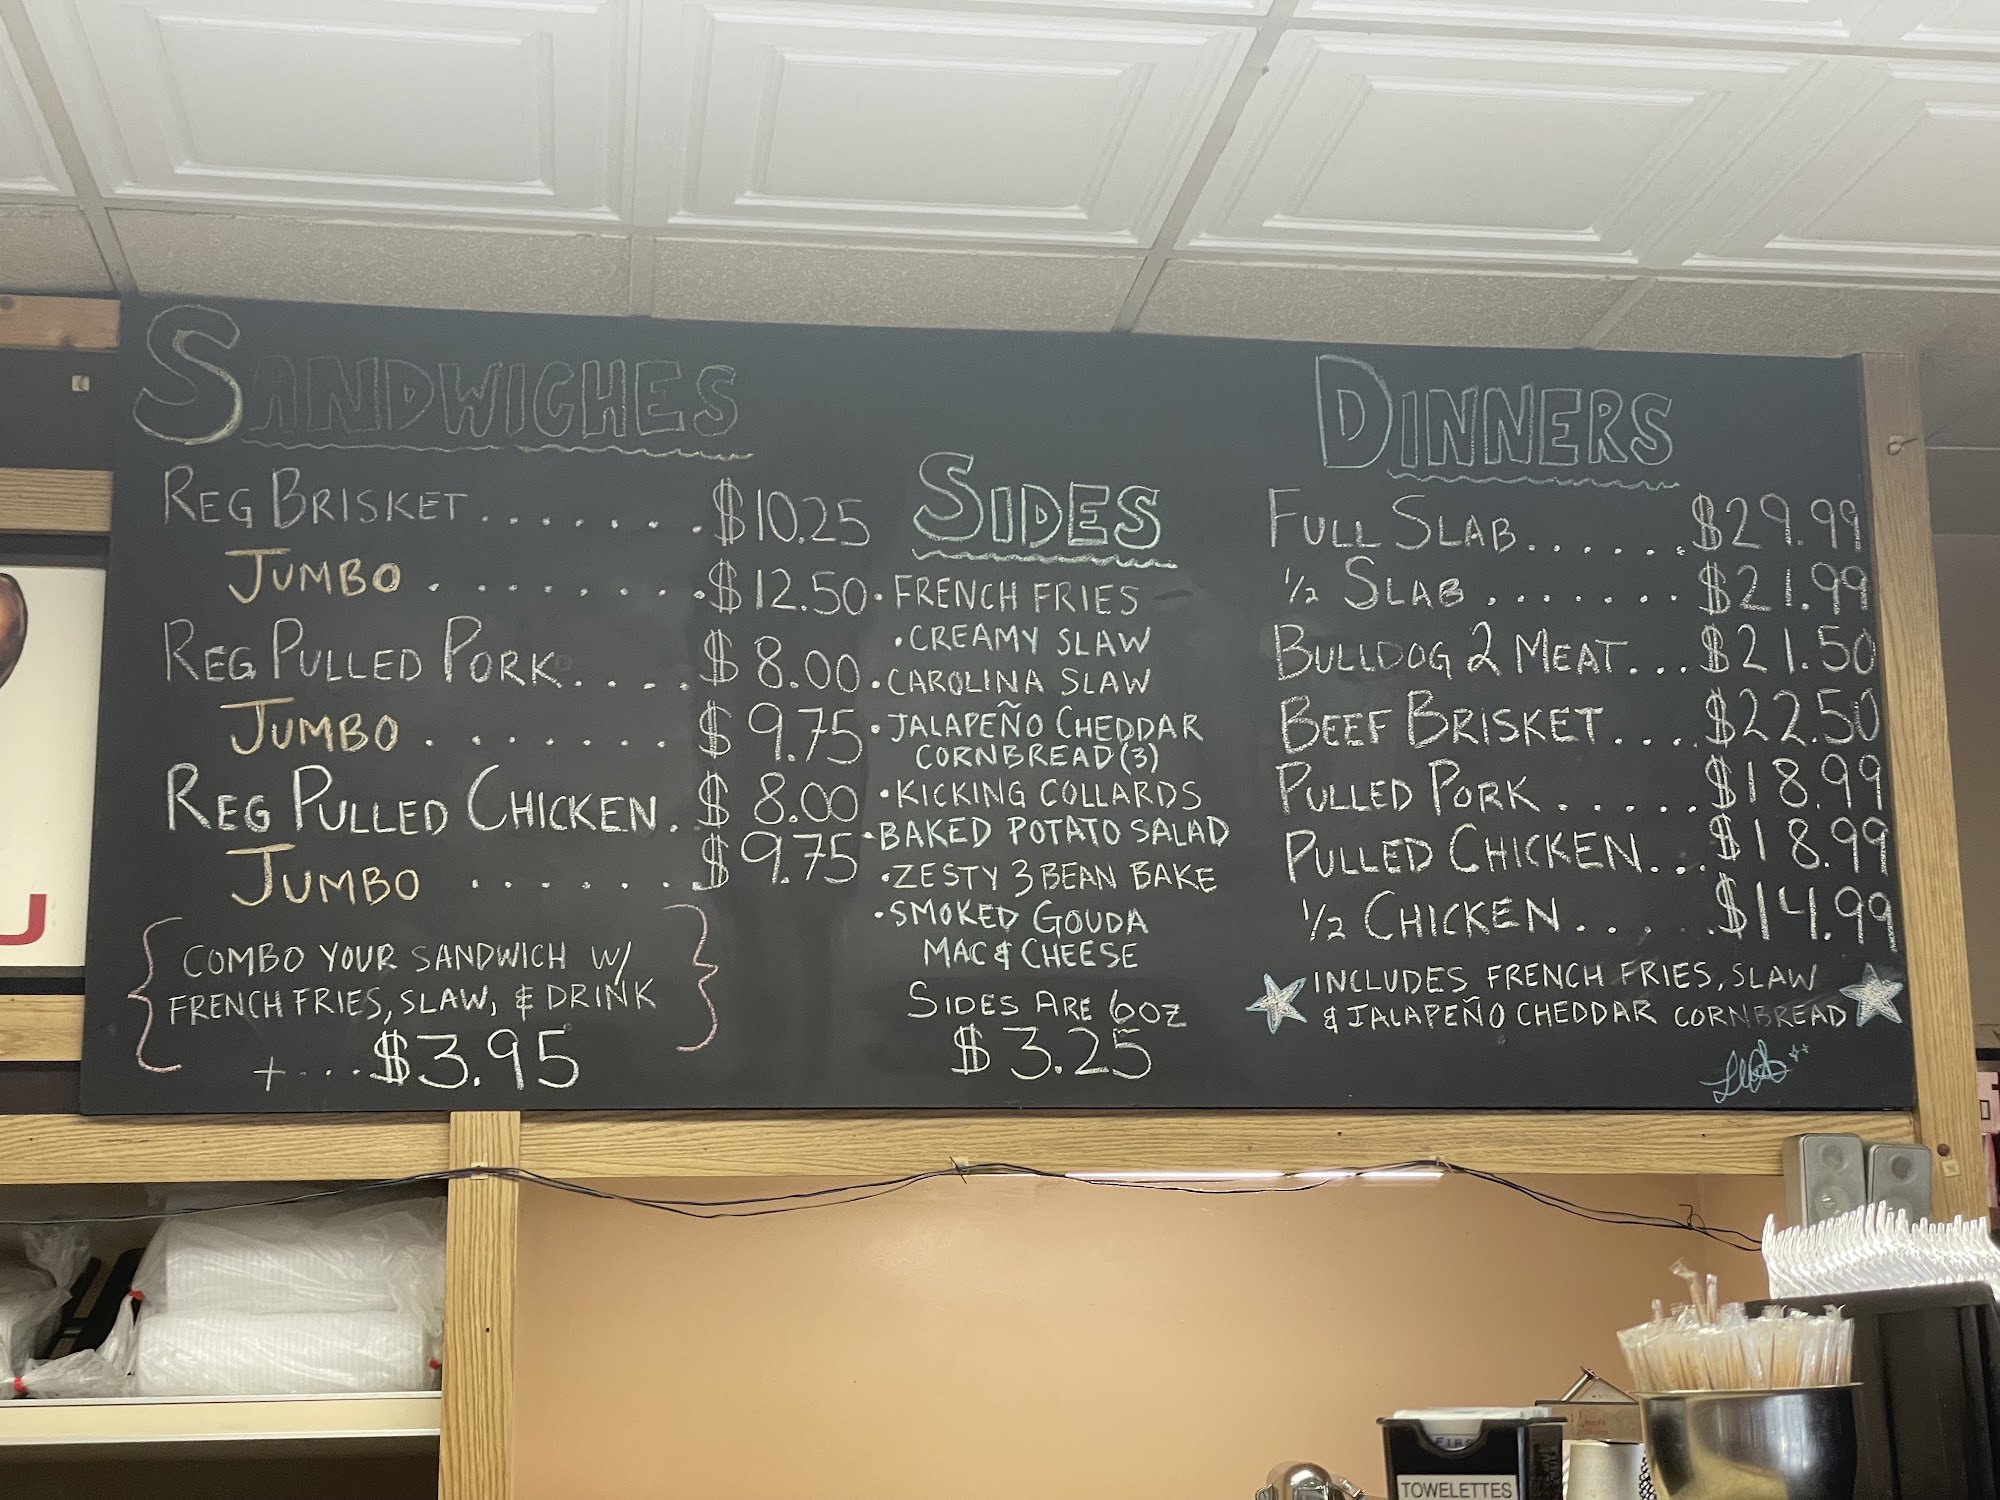 SANDWICHES
REG BRISKET.......$10.25
JUMBO........$12.50
REG PULLED PORK....$8.00
JUMBO.......$9.75
REG PULLED CHICKEN..$8.00
JUMBO ......$9.75
{COMBO YOUR SANDWICH W/
FRENCH FRIES, SLAW, & DRINK}
+...$3.95
SIDES
•FRENCH FRIES
•CREAMY SLAW
•CAROLINA SLAW
•JALAPEÑO CHEDDAR
CORNBREAD (3)
•KICKING COLLARDS
•BAKED POTATO SALAD
•ZESTY 3 BEAN BAKE
•SMOKED GOUDA
MAC & CHEESE
SIDES ARE 6OZ
$3.25
DINNERS
FULL SLAB......$29.99
1/2 SLAB.......$21.99
BULLDOG 2 MEAT...$21.50
BEEF BRISKET....$22.50
PULLED PORK.....$18.99
PULLED CHICKEN...$18.99
1/2 CHICKEN.....$14.99
INCLUDES FRENCH FRIES, SLAW
& JALAPEÑO CHEDDAR CORNBREAD
U
TOWELETTES